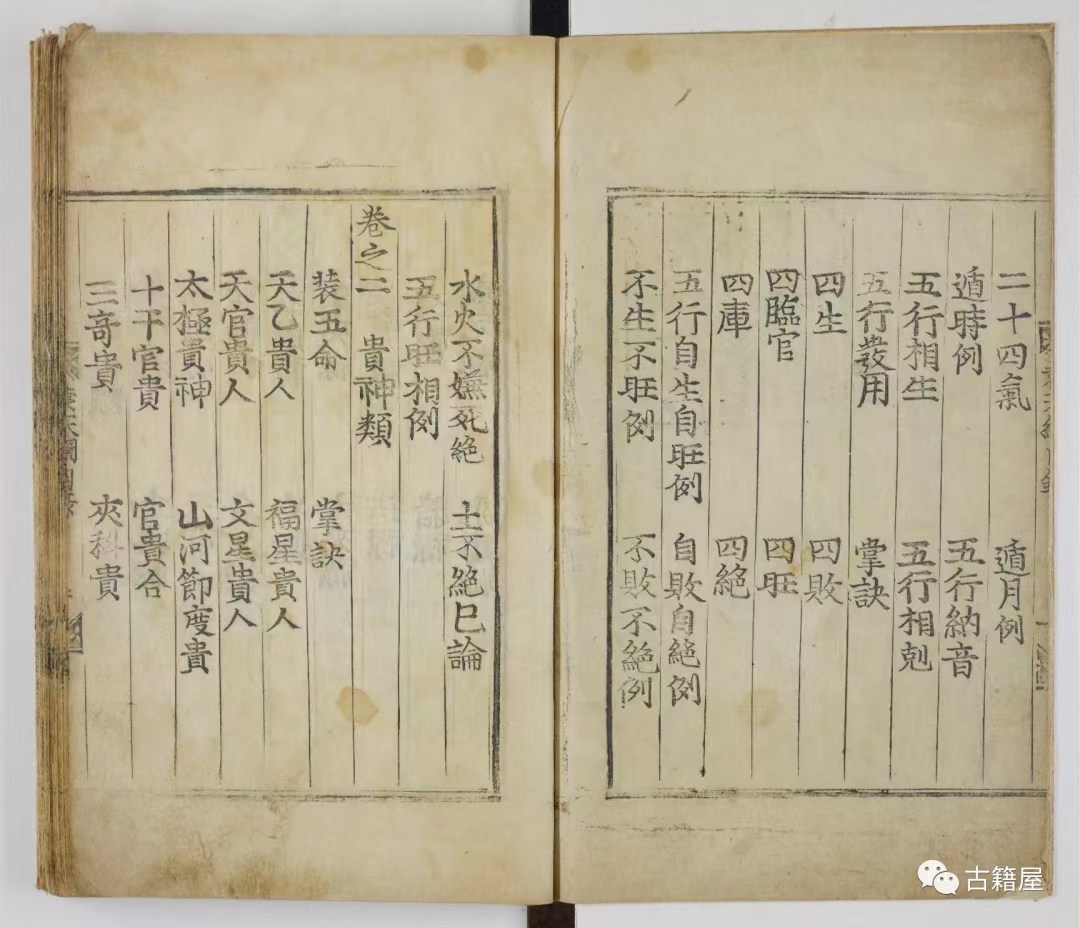 二十四氣　遁月例
遁時例　五行納音
五行相生　五行相剋
五行發用　掌訣
四生　四敗
四臨官　四旺
四庫　四絕
五行自生自旺例　自敗自絕例
不生不旺例　不敗不絕例
水火不嫌死絕　土不絕巳論
五行旺相例
卷之二　貴神類
裝五命　掌訣
天乙貴人　福星貴人
天官貴人　文星貴人
太極貴神　山河節度貴
十干官貴　官貴合
三奇貴　夾科貴
古籍屋